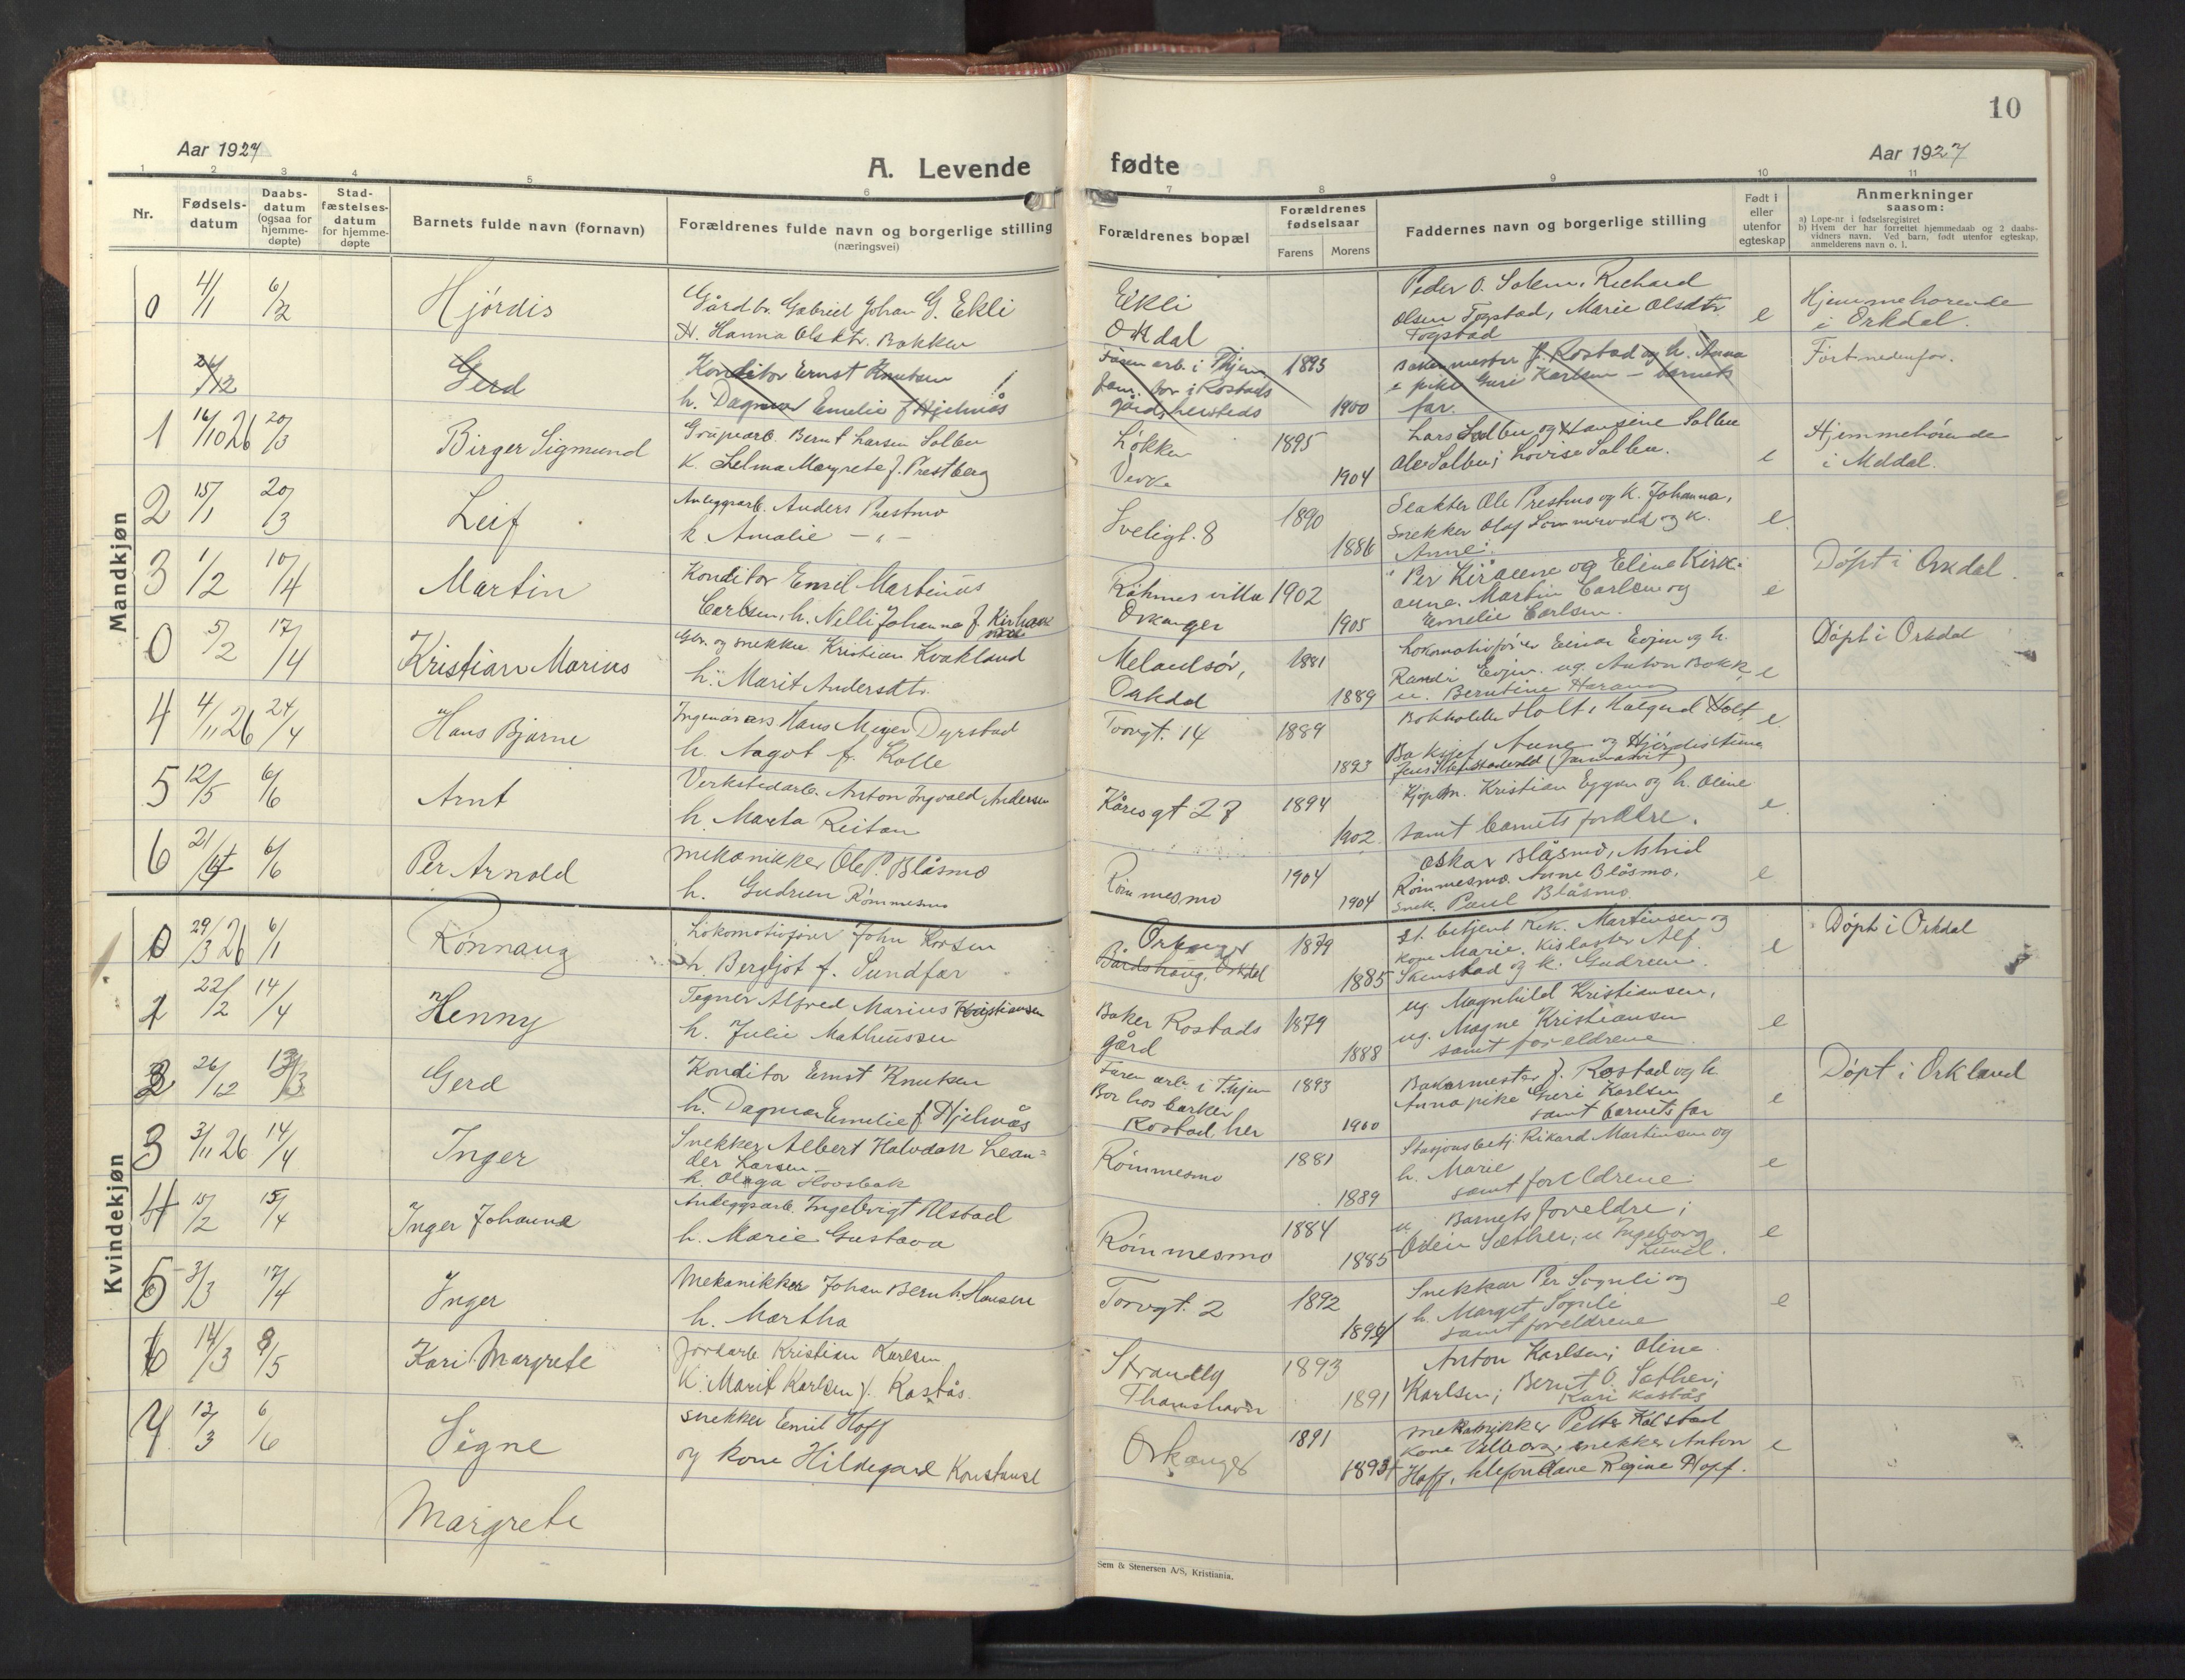 10
Aar 1927
A. Levende
fødte
Aar 1927
1 2 3 4 5 6 7 8 9 10 11
Nr.
Fødsels-
datum
Daabs-
datum
(ogsaa for
hjemme-
døpte)
Stad-
fæstelses-
datum
for hjemme-
døpte
Barnets fulde navn (fornavn)
Forældrenes fulde navn og borgerlige stilling
(næringsvei)
Forældrenes bopæl
Forældrenes
fødselsaar
Farens
Morens
Faddernes navn og borgerlige stilling
Født i
eller
utenfor
egteskap
Anmerkninger
saasom:
a) Lope-nr i fødselsregistret
b) Hvem der har forrettet hjemmedaab og 2 daabs-
vidners navn. Ved barn, født utenfor egteskap,
anmelderens navn o. l.
Mandkjøn
0 4/1 6/2 Hjørdis
Gårdbr. Gabriel Johan G. Ekli
H. Hanna Olsdtr. Bakken
Ekli
Orkdal
Peder O. Solem, Richard
Olsen Togstad, Marie Olsdtr.
Togstad
e
Hjemmehørende
i Orkdal.
26/12 Gerd
Konditor Ernst Knutsen
h. Dagmar Emelie f. Hjelmås
Faren arb. i Thjem
fam. bor i Rostads
gård, hersteds
1893
1900
Bakermester J. Rostad og h. Anna
e pike Guri Karlsen - barnets
far.
Ført nedenfor.
1 16/10 26 20/3 Birger Sigmund
Grupearb. Bernt Larsen Solbu
K. Selma Margrete f. Prestberg
Løkken
Verk
1895
1904
Lars Solbu og Hansine Solbu
Ole Solbu; Lovise Solbu.
e
Hjemmehørende
i Meldal.
2 15/1 20/3 Leif
Anleggsarb. Anders Prestmo
k Amalie — " —
Sveligt. 8
1890
1886
Slakter Ole Prestmo og K. Johanna,
Snekker Olaf Sommervold og k.
Anne.
e
3 1/2 10/4 Martin
Konditor Emil Martinus
Carlsen, h. Nelli Johanna f. Kirkaune
Råhmes villa
Orkanger
1902
1905
Per Kirkaune og Eline Kirk-
aune. Martin Carlsen og
Emelie Carlsen.
e
Døpt i Orkdal
0 5/2 17/4 Kristian Marius
Gbr. og snekker Kristian Kvakland
h. Marit Andersdtr.
Melandsør,
Orkdal
1881
1889
Lokomotivfører Einar Evjen og h.
Randi Evjen. ug. Anton Bakk,
u. Berntine
e
Døpt i Orkdal
4 4/11 26 24/4 Hans Bjarne
Ingeniør Hans Meyer Dyrstad
h. Aagot f. Kolle
Torvgt. 14
1889
1893
Bokholder Holt, Halgerd Holt
e
5 12/5 6/6 Arnt
Verkstedarb. Anton Ingvald Andersen
h. Marta Reitan
Kåresgt 27
1894
1902
Kjøpm. Kristian Eggen og h. Oline
samt barnets foreldre.
e
6 21/4 6/6 Per Arnold
Mekanikker Ole P. Blåsmo
h. Gudrun Rømmesmo
Rømmesmo
1904
1904
Oskar Blåsmo, Astrid
Rømmesmo. Anne Blåsmo.
Snek. Paul Blåsmo.
e
Kvindekjøn
0 29/3 26 6/1 Rønnaug
Lokomotivfører John Korsen
h. Bergljot f. Sundfær
Orkanger
Bårdshaug, Orkdal
1879
1885
St. betjent Rik. Martinsen og
kone Marie. Kislaster Alf.
Skinstad og k. Gudrun.
e
Døpt i Orkdal
1 22/2 14/4 Henny
Tegner Alfred Marius Kristiansen
h. Julie Matheussen
Baker Rostads
gård
1879
1888
ug. Magnhild Kristiansen,
ug. Magne Kristiansen
samt foreldrene.
e
2 26/12 13/3 Gerd
Konditor Ernst Knutsen
h. Dagmar Emelie f. Hjelmås
Faren arb. i Thjem
Bor hos baker
Rostad, her
1893
1900
Bakermester J. Rostad og h.
Anna pike Guri Karlsen
samt barnets far
e
Døpt i Orkland
3 3/11 26 14/4 Inger
Snekker Albert Halvdan Lean=
der Larsen
k. Olga Hovsbak
Rømmesmo
1881
1889
Stasjonsbetj. Rikard Martinsen og
h. Marie
samt foreldrene.
e
4 15/2 15/4 Inger Johanne
Anleggsarb. Ingebrigt Alstad
h. Marie Gustava
Rømmesmo
1884
1885
Barnets foreldre;
u Odin Sæther; u Ingeborg
Lund.
e
5 3/3 17/4 Inger
Mekanikker Johan Bernh. Hansen
h. Martha
Torvgt. 2
1892
1894
Snekker Per Sognli og
h. Marget Sognli
samt foreldrene
e
6 14/3 8/5 Kari Margrete
Jordarb. Kristian Karlsen
K. Marit Karlsen f. Kastås.
Strandly
Thamshavn
1893
1891
Anton Karlsen; Oline
Karlsen; Bernt O. Sæther;
Kari Kastås
7 12/3 6/6 Signe
Margrete
Snekker Emil Hoff
og kone Hildegard Konstanse
Orkanger
1891
1893
Mekanikker Petter Kalstad
kone Valborg; snekker Anton
Hoff, telefondame Regine Hoff.
e
Sem & Stenersen A/S, Kristiania.